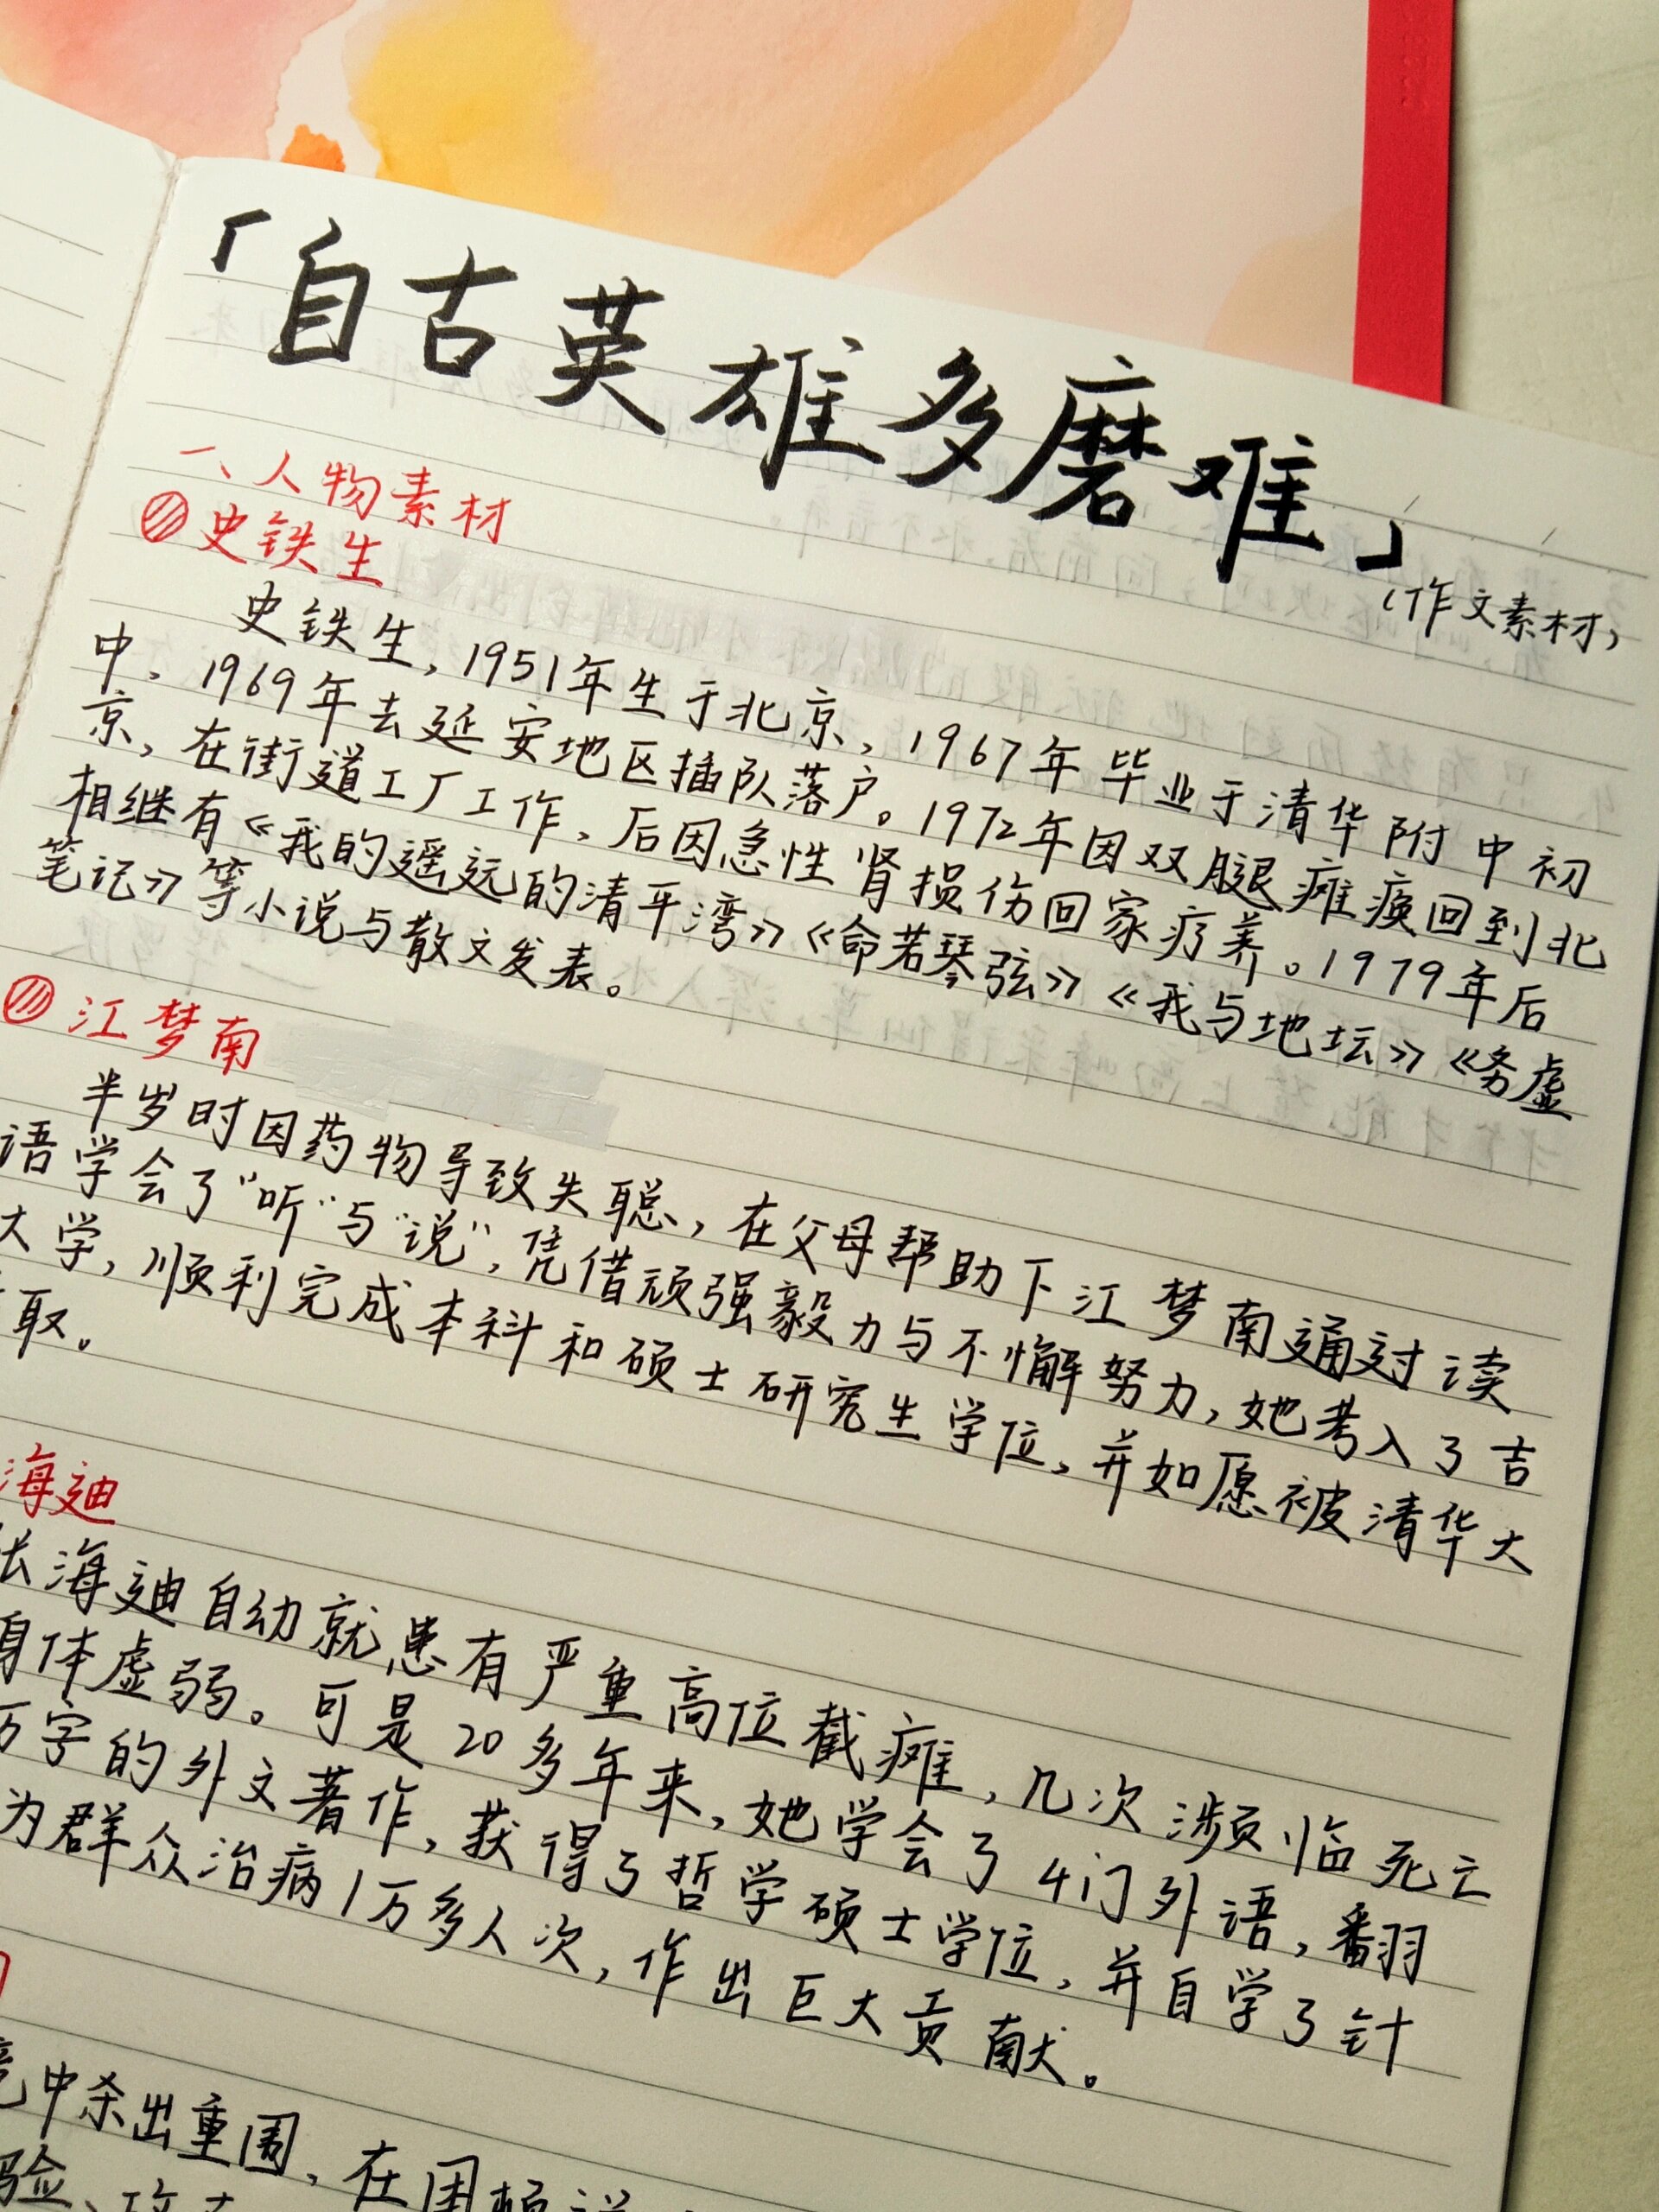 「自古英雄多磨难」
(作文素材)
一、人物素材
史铁生
史铁生,1951年生于北京,1967年毕业于清华附中初
中,1969年去延安地区插队落户。1972年因双腿瘫痪回到北
京,在街道工厂工作,后因急性肾损伤回家疗养。1979年后
相继有《我的遥远的清平湾》《命若琴弦》《我与地坛》《务虚
笔记》等小说与散文发表。
江梦南
半岁时因药物导致失聪,在父母帮助下江梦南通过读
语学会了“听”与“说”,凭借顽强毅力与不懈努力,她考入了吉
大学,顺利完成本科和硕士研究生学位,并如愿被清华大
取。
海迪
张海迪自幼就患有严重高位截瘫,几次濒临死亡
身体虚弱。可是20多年来,她学会了4门外语,翻
万字的外文著作,获得了哲学硕士学位,并自学了针
为群众治病1万多人次,作出巨大贡献。
中杀出重围,在困顿
验、